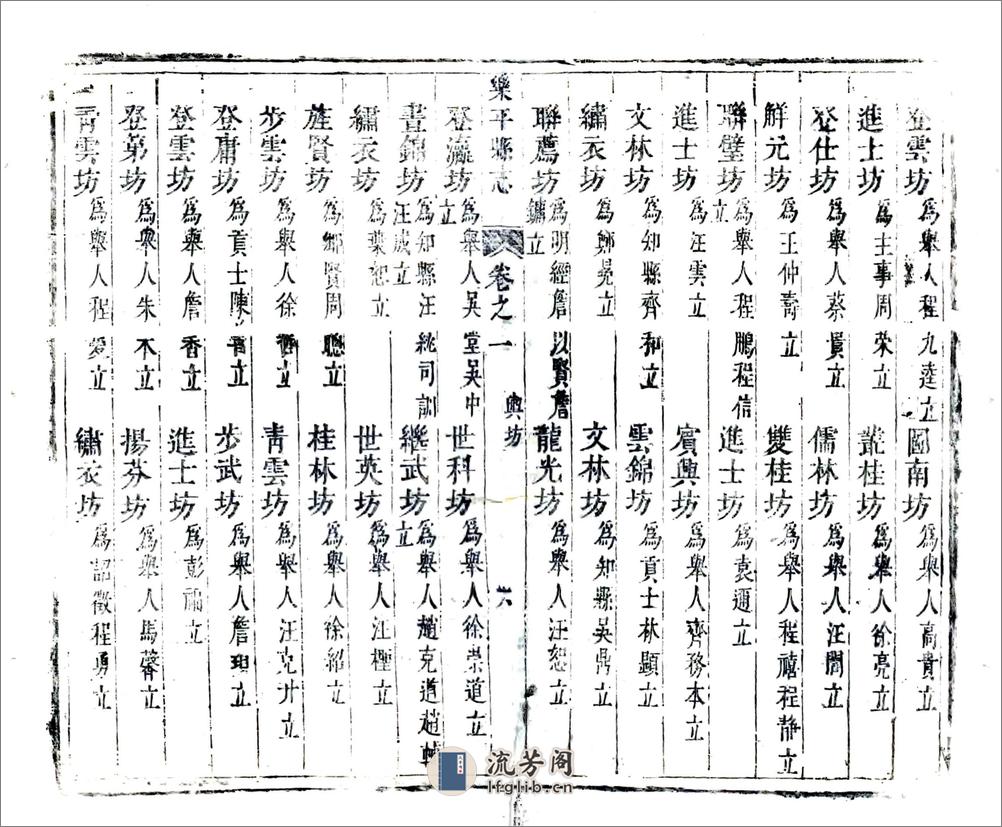 登雲坊 爲舉人程九逵立 國南坊 爲舉人高貴立
進士坊 爲主事周榮立 叢桂坊 爲舉人徐亮立
登仕坊 爲舉人蔡貴立 儒林坊 爲舉人汪誾立
解元坊 爲王仲壽立 雙桂坊 爲舉人程禧程靜立
聯璧坊 爲舉人程鵬程信立 進士坊 爲袁邇立
進士坊 爲汪雲立 賓興坊 爲舉人齊務本立
文林坊 爲知縣齊和立 雲錦坊 爲貢士林顯立
繡衣坊 爲鄭晃立 文林坊 爲知縣吳鼎立
聯薦坊 爲明經詹以賢詹鏞立 龍光坊 爲舉人汪恕立
樂平縣志 卷之一 輿坊 六
登瀛坊 爲舉人吳堂吳中立 世科坊 爲舉人徐崇道立
晝錦坊 爲知縣汪統司訓汪歲立 繼武坊 爲舉人趙克道趙立
繡衣坊 爲葉恕立 世英坊 爲舉人汪立
旌賢坊 爲鄉賢周聰立 桂林坊 爲舉人徐紹立
步雲坊 爲舉人徐立 青雲坊 爲舉人汪克廾立
登庸坊 爲貢士陳立 步武坊 爲舉人詹立
登雲坊 爲舉人詹香立 進士坊 爲彭立
登第坊 爲舉人朱立 揚芬坊 爲舉人馬馨立
青雲坊 爲舉人程愛立 繡衣坊 爲詔徵程勇立
流芳阁
lfglib.cn